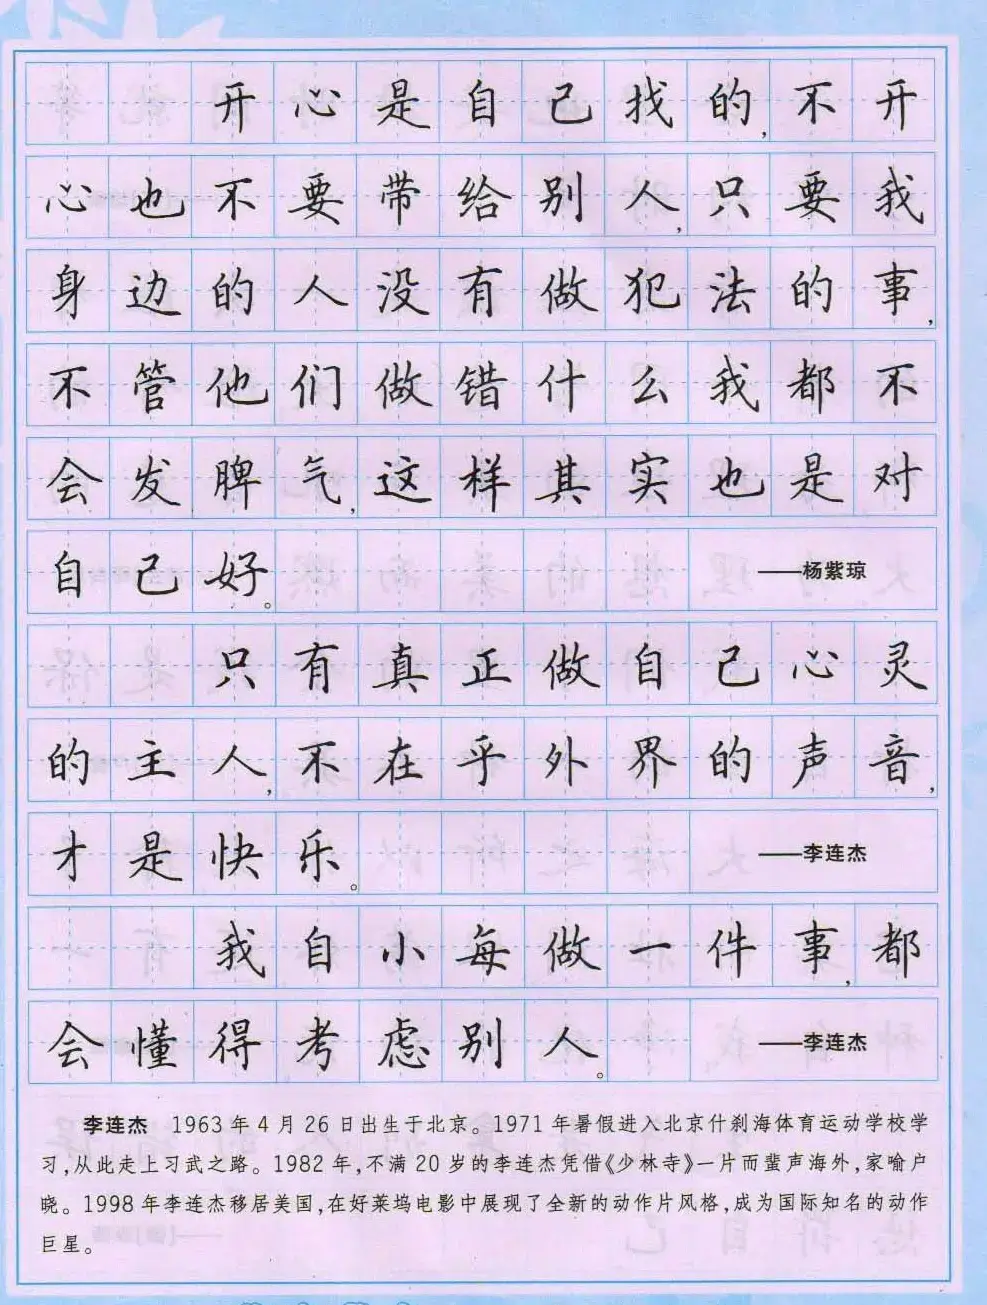 开心是自己找的,不开
心也不要带给别人,只要我
身边的人没有做犯法的事,
不管他们做错什么我都不
会发脾气,这样其实也是对
自己好。 ——杨紫琼
只有真正做自己心灵
的主人,不在乎外界的声音,
才是快乐。 ——李连杰
我自小每做一件事,都
会懂得考虑别人。 ——李连杰
李连杰 1963年4月26日出生于北京。1971年暑假进入北京什刹海体育运动学校学
习,从此走上习武之路。1982年,不满20岁的李连杰凭借《少林寺》一片而蜚声海外,家喻户
晓。1998年李连杰移居美国,在好莱坞电影中展现了全新的动作片风格,成为国际知名的动作
巨星。